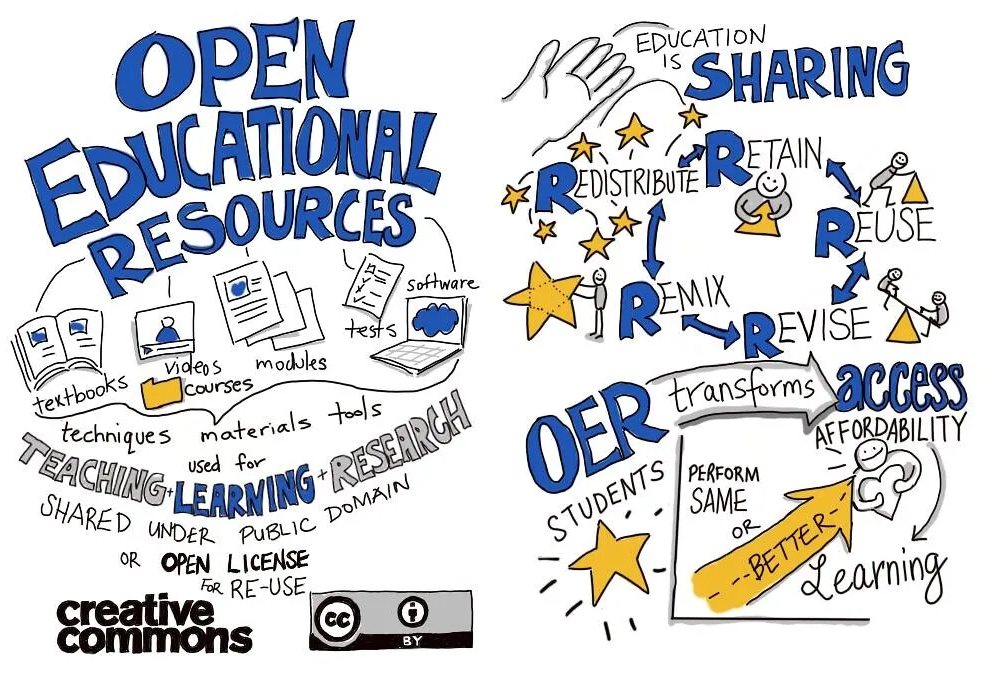 OPEN
EDUCATIONAL
RESOURCES
textbooks
videos
courses
modules
tests
software
techniques materials tools
used for
TEACHING + LEARNING + RESEARCH
SHARED UNDER PUBLIC DOMAIN
OR OPEN LICENSE
FOR RE-USE
creative
commons
cc
BY
EDUCATION
IS SHARING
REDISTRIBUTE
RETAIN
REUSE
REVISE
REMIX
OER transforms access
AFFORDABILITY
Learning
STUDENTS
PERFORM
SAME
OR
BETTER